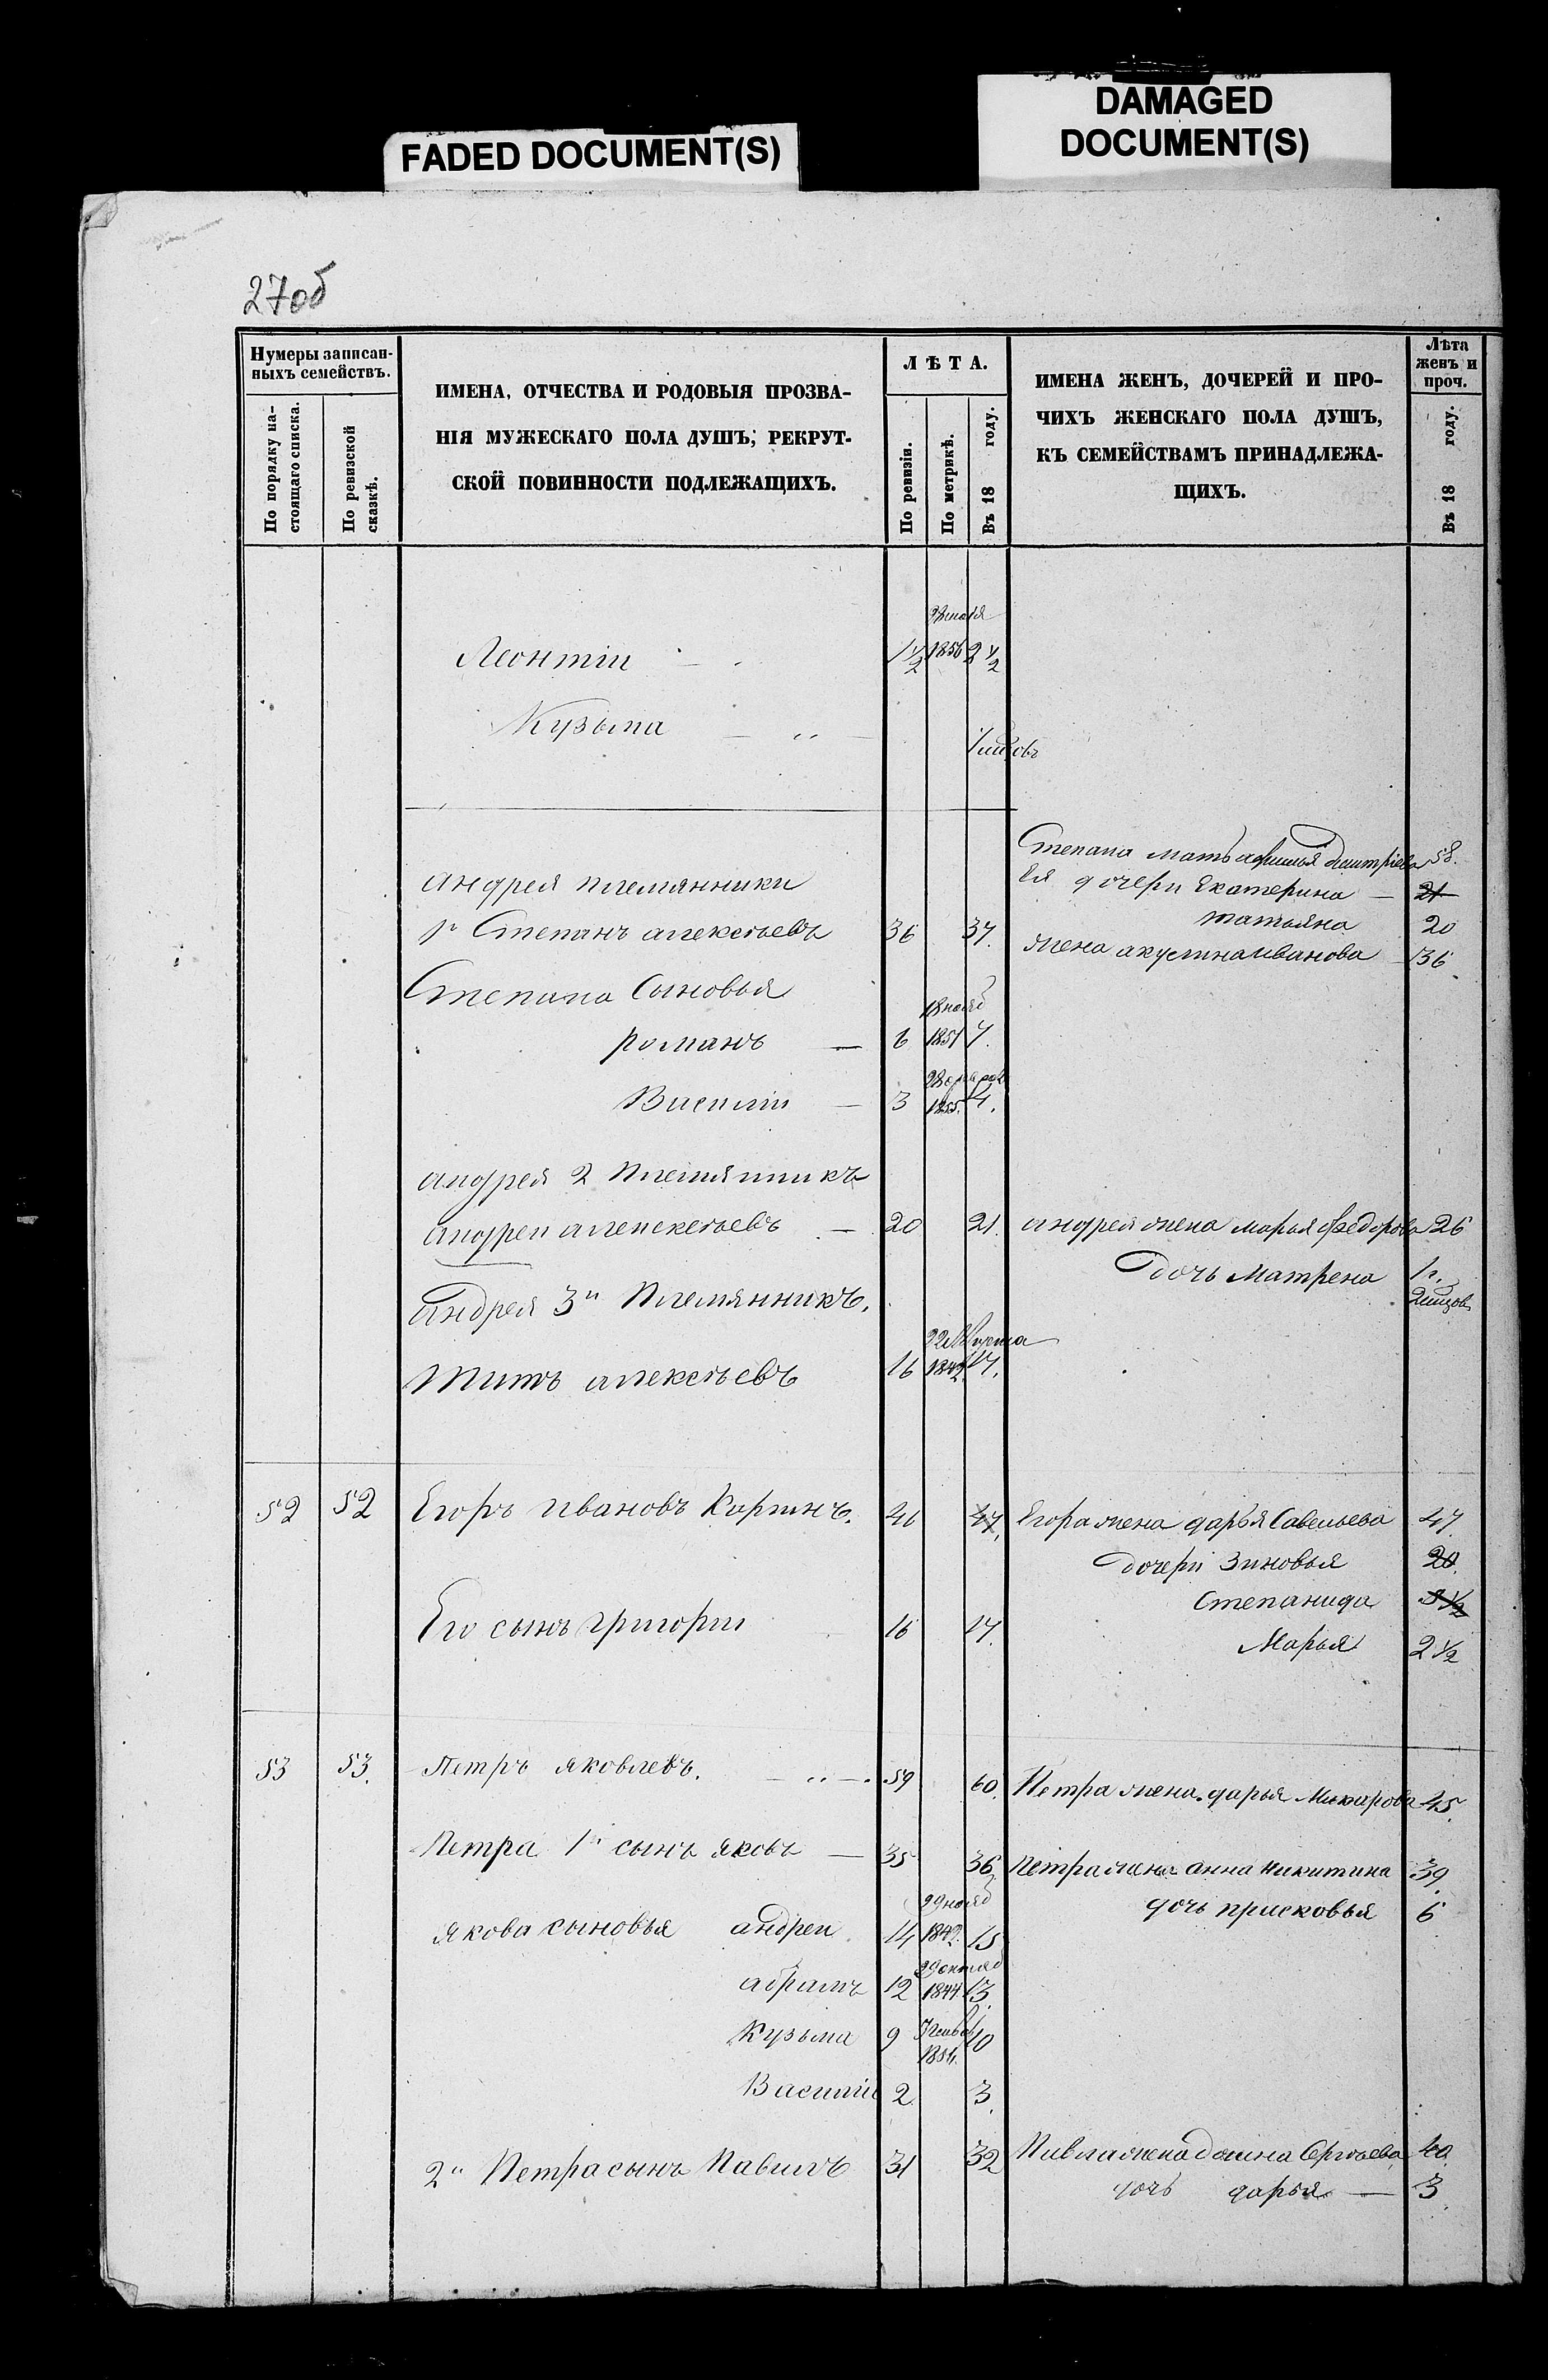 FADED DOCUMENT(S)
DAMAGED
DOCUMENT(S)
27об
Нумеры записан-
ныхъ семействъ.
По порядку на-
стоящаго списка.
По ревизской
сказкѣ.
ИМЕНА, ОТЧЕСТВА И РОДОВЫЯ ПРОЗВА-
НІЯ МУЖЕСКАГО ПОЛА ДУШЪ, РЕКРУТ-
СКОЙ ПОВИННОСТИ ПОДЛЕЖАЩИХЪ.
ЛѢТА.
По ревизіи.
По метрикѣ.
Въ 18 году.
ИМЕНА ЖЕНЪ, ДОЧЕРЕЙ И ПРО-
ЧИХЪ ЖЕНСКАГО ПОЛА ДУШЪ,
КЪ СЕМЕЙСТВАМЪ ПРИНАДЛЕЖА-
ЩИХЪ.
Лѣта
женъ и
проч.
Въ 18 году.
Леонтіи 1 1/2 1856 2 1/2
Кузьма
Степана мать дмитріева 58.
андрея племянники
Ея дочери Екатерина — 21
татьяна 20
1й Степанъ алексѣевъ 36 37.
жена акулина иванова 36
Степана Сыновья
18 нояб
романъ — 6 1851 7.
Василіи — 3 1855. 4.
андрея 2 племянникъ
андреи алексѣевъ — 20 21. андрея жена марья Федорова 26
дочь матрена 1 г.
андрея 3й племянникъ.
22 Августа
титъ алексѣевъ 16 1842 17.
52 52 Егоръ ивановъ 46 47. Егора жена дарья Савельева 47
дочери Зиновья 20.
Степанида 1/2
Его сынъ григоріи 16 17.
Марья 2 1/2
53 53. Петръ яковлевъ. 59 60. Петра жена дарья 45.
Петра 1й сынъ яковъ — 35 36. Петра жена анна никитина 39
29 нояб
дочь присковья 6
якова сыновья андреи 14 1842. 15
29 октяб
абрамъ 12 1844 13.
Кузьма 9 10
Василіи 2 3.
2й Петра сынъ Павилъ 31 32 Павла жена Сергѣева 40
дочь дарья — 3